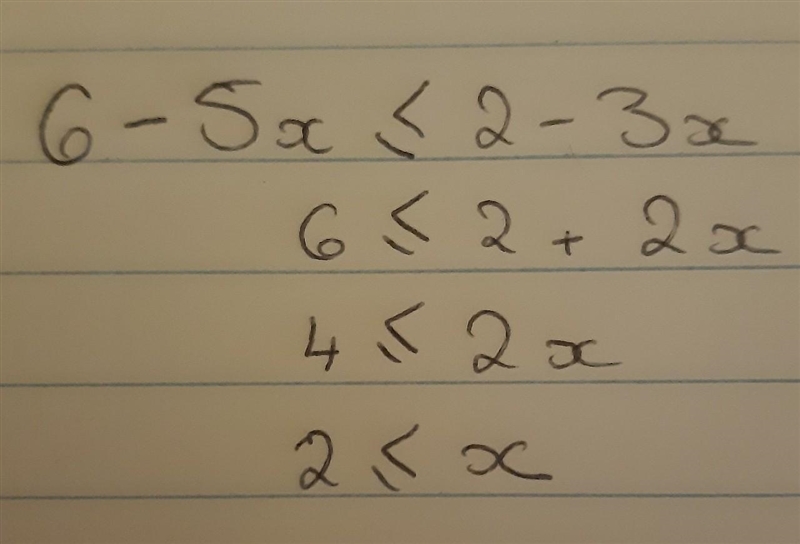 6 - 5x ≤ 2 - 3x
6 ≤ 2 + 2x
4 ≤ 2x
2 ≤ x